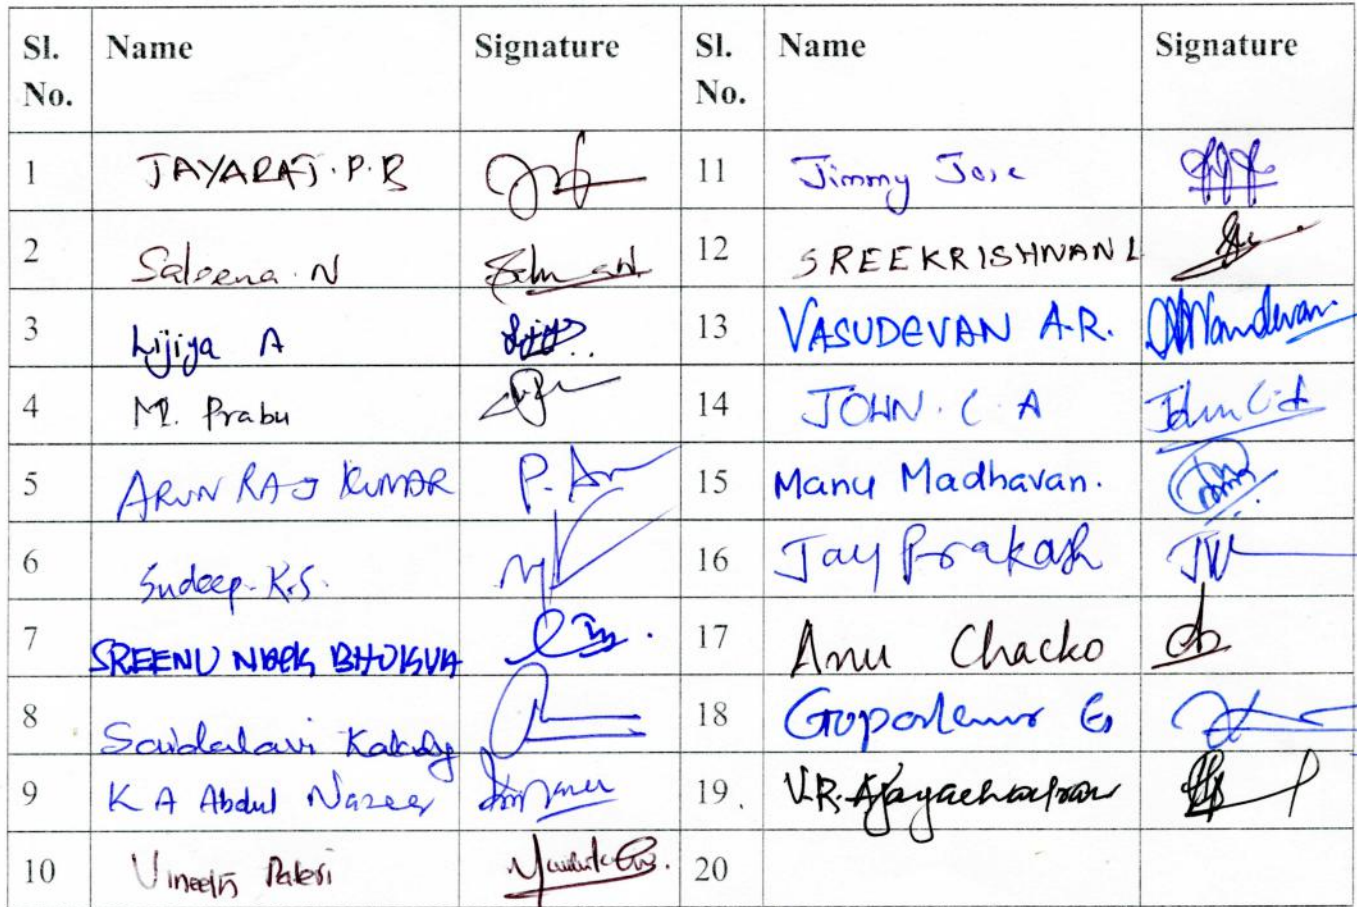 Sl. No. Name Signature Sl. No. Name Signature
1 JAYARAJ. P. B 11 Jimmy Jose
2 Saleena. N 12 SREEKRISHNAN L
3 Lijiya A 13 VASUDEVAN A.R. Vasudevan
4 M. Prabu 14 JOHN. C A John C.A
5 ARUN RAJ KUMAR P. Ar 15 Manu Madhavan.
6 Sudeep. K.S. 16 Jay Prakash
7 SREENU NAIK BHUKYA 17 Anu Chacko
8 Saidalavi Kalady 18 G
9 K A Abdul Nazeer 19. V.R.
10 Vineeth Paleri 20